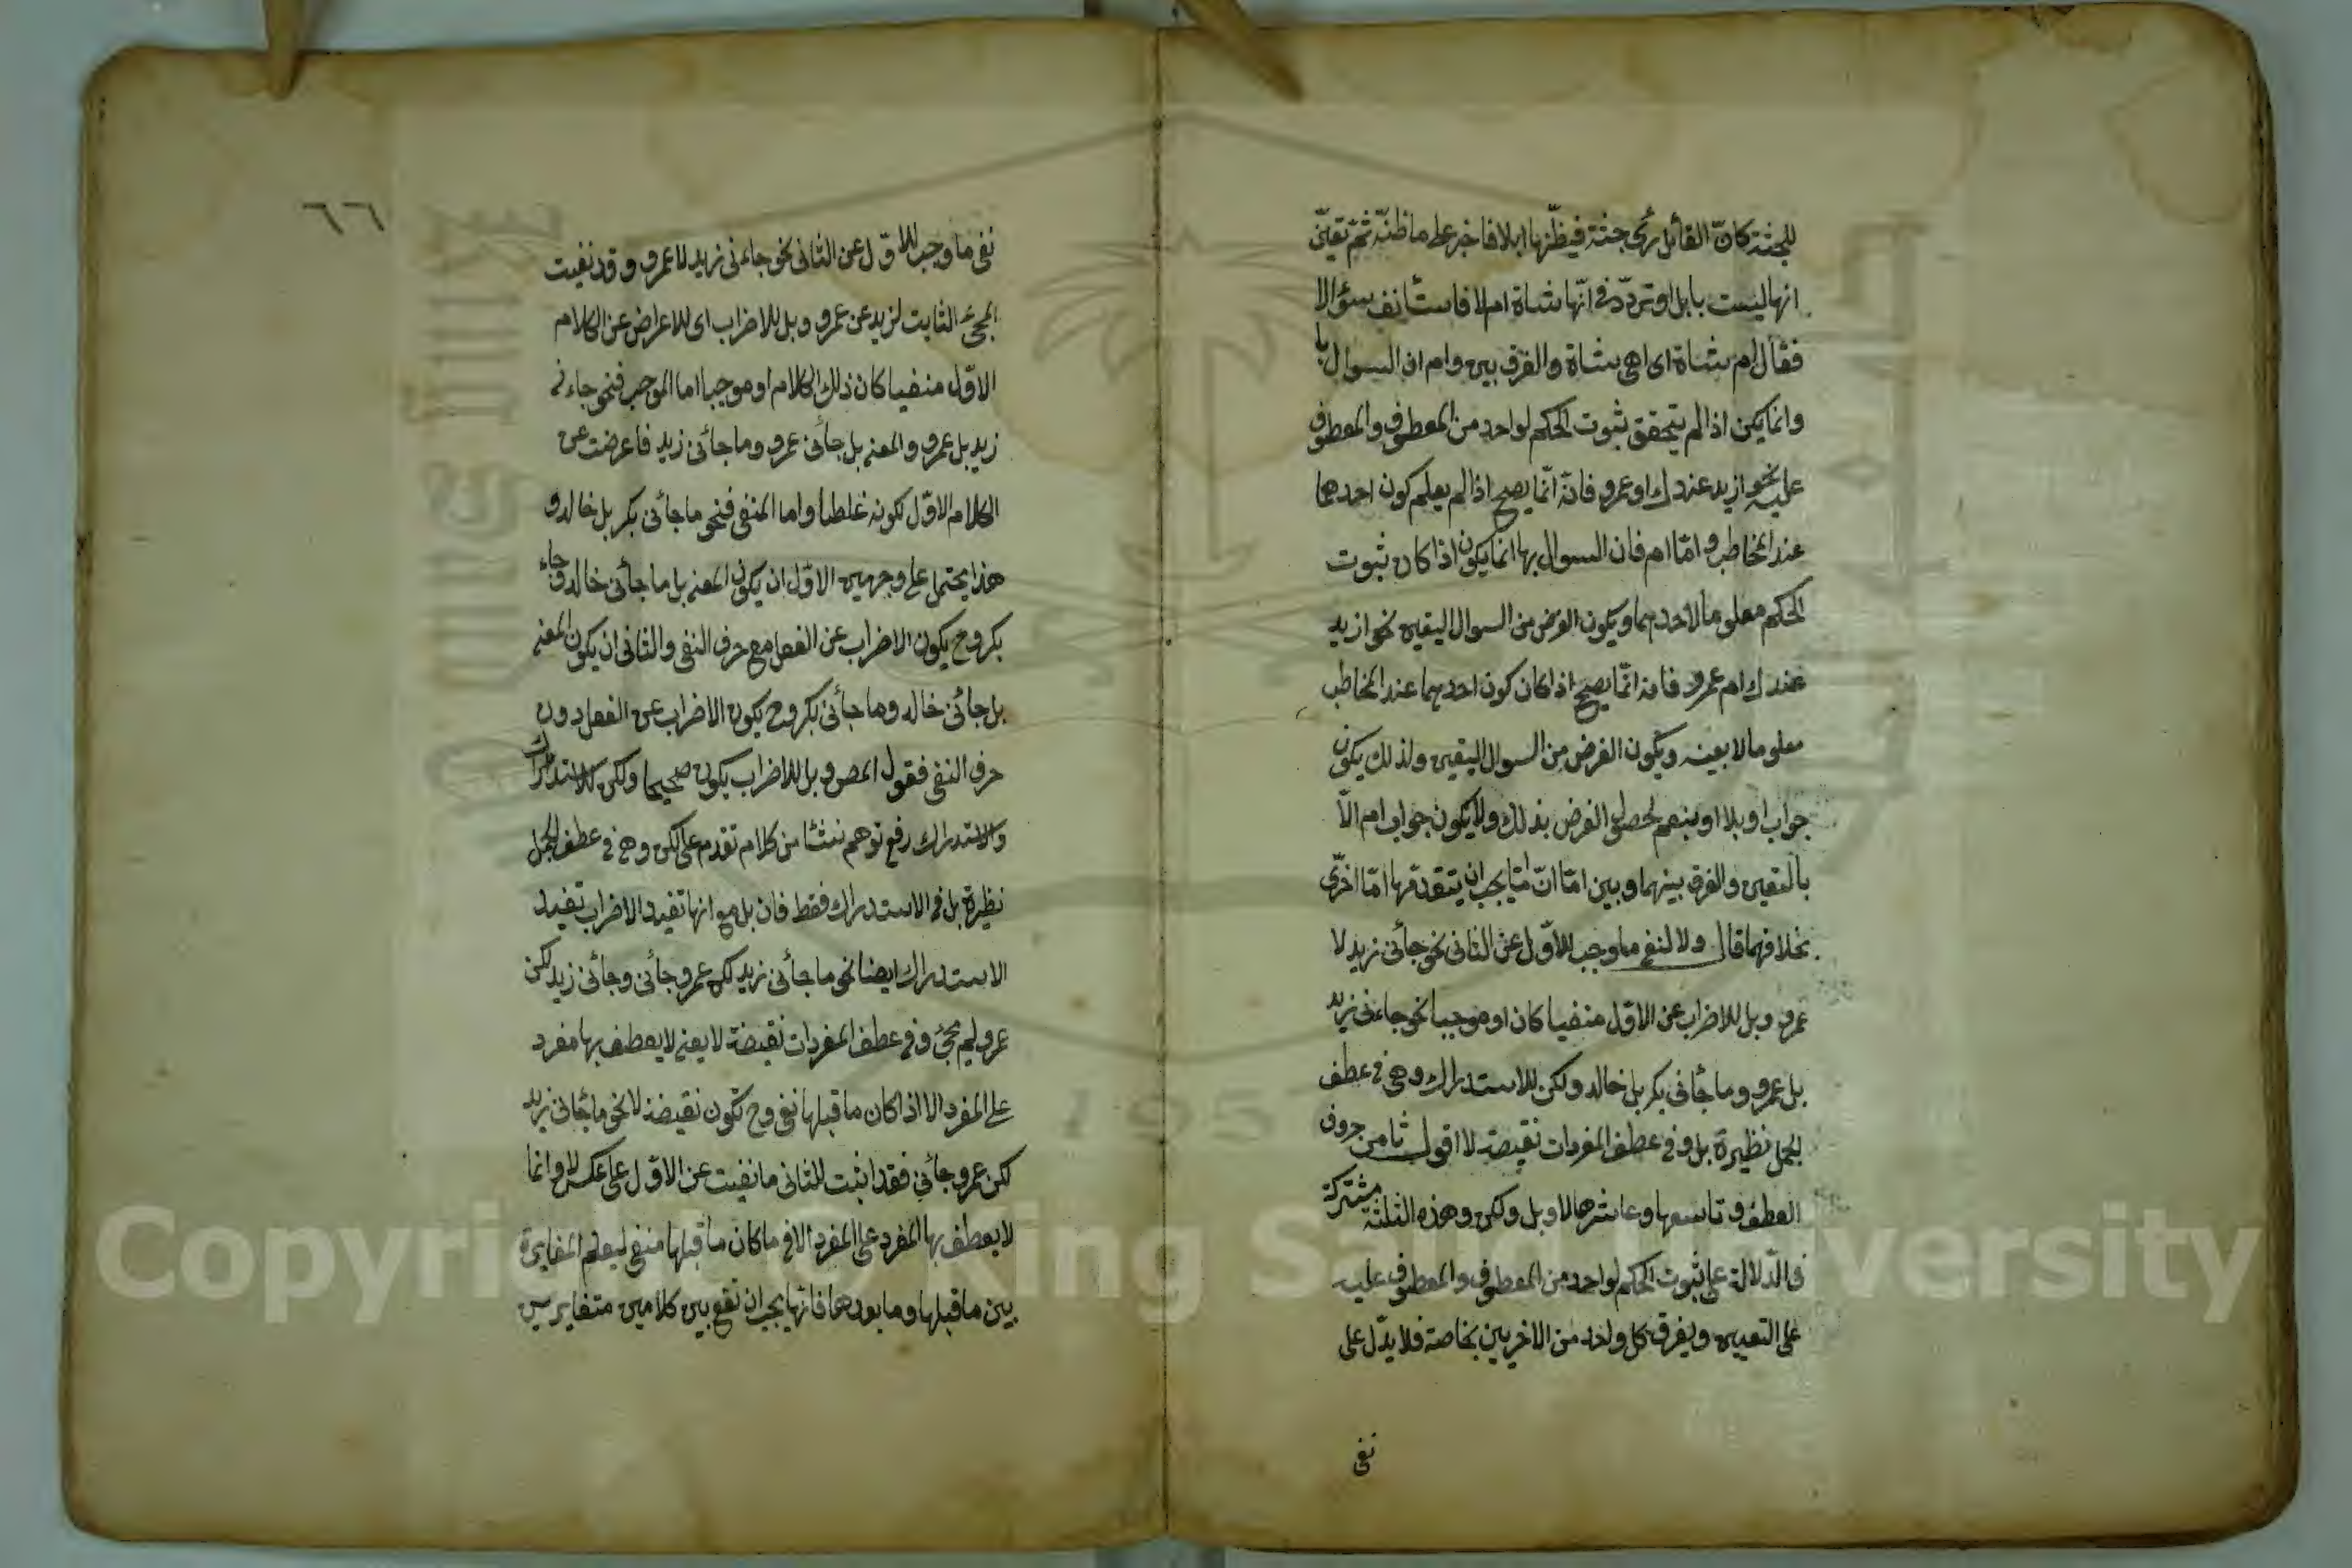 للجثة كانّ القائل رأى جثة فيظنّها ابلا فاخبر على ما ظنّه ثم تيقّن
انها ليست بابل اوتردّد فى انّها شاة ام لا فاستأنف سؤالا
فقال ام شاة اى اهى شاة والفرق بين او وام ان السوال با
وانما يكن اذا لم يتحقق ثبوت الحكم لواحد من المعطوف والمعطوف
عليه نحو ازيد عندك او عمرو فانّه انّما يصح اذا لم يعلم كون احدهما
عند المخاطب و امّا ام فان السوال بها انما يكون اذا كان ثبوت
الحكم معلوما لاحدهما ويكون الغرض من السوال التعيين نحو ازيد
عندك ام عمرو فانه انّما يصح اذا كان كون احدهما عند المخاطب
معلوما لا بعينه ويكون الغرض من السوال التعيين ولذلك يكون
جواب او بلا او بنعم لحصول الغرض بذلك ولا يكون جواب ام الّا
بالتعيين والفرق بينهما وبين امّا انّ امّا يجب ان يتقدّمها امّا اخرى
بخلافهما قال ولا لنفى ما وجب للاوّل عن الثانى نحو جائنى زيد لا
عمرو وبل للاضراب عن الاوّل منفيا كان او موجبا نحو جاءنى زيد
بل عمرو وما جائنى بكر بل خالد ولكن للاستدراك وهى فى عطف
الجمل نظيرة بل وفى عطف المفردات نقيضة لا اقول ثامن حروف
العطف وتاسعها وعاشرها لا وبل ولكن وهذه الثلثة مشتركة
فى الدّلالة على ثبوت الحكم لواحد من المعطوف والمعطوف عليه
على التعيين ويفرق كل واحد من الاخريين بخاصة فلا يدّل على
نفى
٦٦
نفى ما وجب للاوّل عن الثانى نحو جاءنى زيد لا عمرو وقد نفيت
المجئ الثابت لزيد عن عمرو وبل للاضراب اى للاعراض عن الكلام
الاوّل منفيا كان ذلك الكلام او موجبا اما الموجب فنحو جاءنى
زيد بل عمرو والمعنى بل جائنى عمرو وما جائنى زيد فاعرضت عن
الكلام الاوّل لكونه غلطا واما المنفى فنحو ماجائنى بكر بل خالد و
هذا يحتمل على وجهين الاوّل ان يكون المعنى بل ما جائنى خالد وجاء
بكر وح يكون الاضراب عن الفعل مع حرف النفى والثانى ان يكون المعنى
بل جائنى خالد وما جائنى بكر وح يكون الاضراب عن الفعل دون
حرف النفى فقول المص وبل للاضراب يكون صحيحا ولكن للاستدراك
والاستدراك رفع توهم نشأ من كلام تقدم على لكن وهى فى عطف الجمل
نظيرة بل فى الاستدراك فقط فان بل مع انها تفيد الاضراب تفيد
الاستدراك ايضا نحو ما جائنى زيد لكن عمرو جائنى وجائنى زيد لكن
عمرو لم يجئ وفى عطف المفردات نقيضة لا يعنى لا يعطف بها مفرد
على المفرد الا اذا كان ما قبلها نفى وح تكون نقيضة لا نحو ما جائنى زيد
لكن عمرو جائنى فقد اثبت للثانى ما نفيت عن الاوّل على عكس لا وانما
لا يعطف بها المفرد على المفرد الا فى ما كان ما قبلها منفى ليعلم المغايرة
بين ما قبلها وما بعدها فانّها يجب ان تقع بين كلامين متغايرين